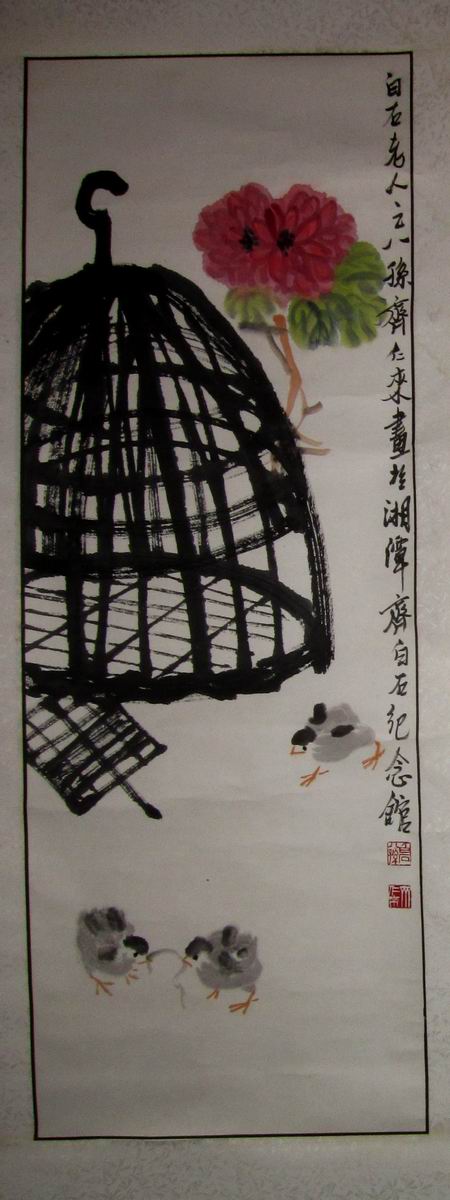 白石老人之八孫齊仁來畫於湘潭齊白石紀念館